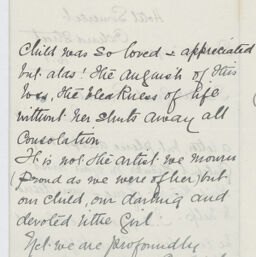 child was so loved & appreciated
but alas! the anguish of this
loss, the bleakness of life
without her shuts away all
Consolation
It is not the artist we mourn
(proud as we were of her) but
our child, our darling and
devoted little Girl.
Yet we are profoundly